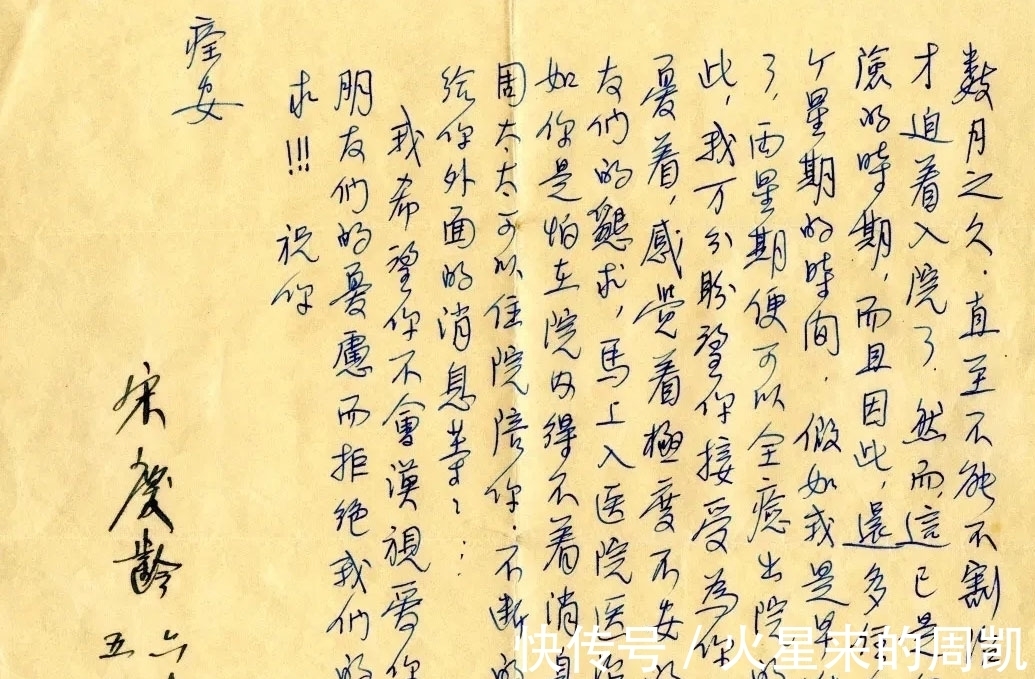 數月之久.直至不能不割治
才迫着入院了.然而,這已是
險的時期,而且因此,還多住
个星期的時间.假如我是早
了,两星期便可以全癒出院的
此,我万分盼望你接受為你
憂着,感觉着極度不安的
友们的懇求,馬上入医院医治
如你是怕在院内得不着消息
周太太可以住院陪你.不断的
给你外面的消息等:
我希望你不會漠視爱你
朋友们的憂慮而拒绝我们的
求!!! 祝你
痊安
宋慶齡
五 六
快传号/火星来的周凯